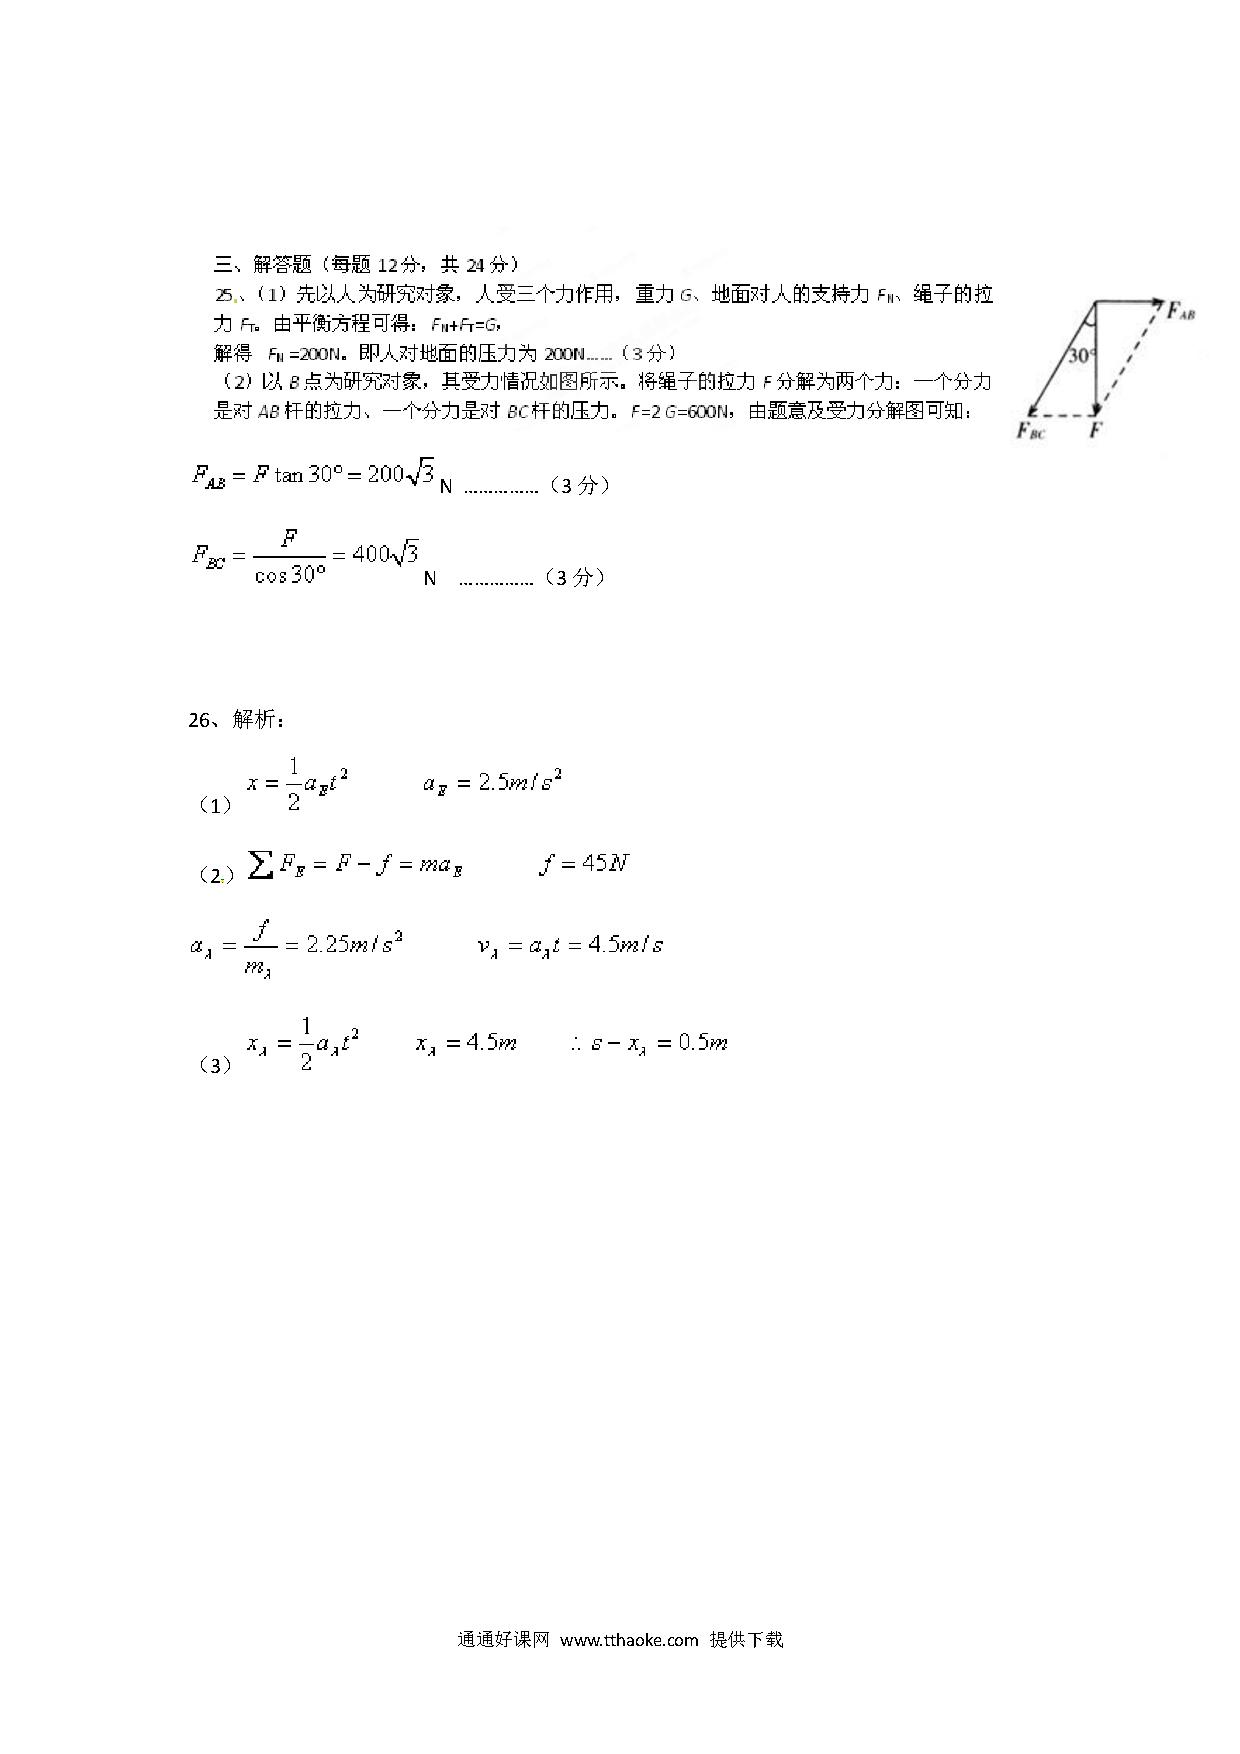 三、解答题（每题 12分，共 24 分）
25、（1）先以人为研究对象，人受三个力作用，重力 G、地面对人的支持力 FN、绳子的拉
力 FT。由平衡方程可得：FN+FT=G，
解得 FN =200N。即人对地面的压力为 200N……（3 分）
（2）以 B 点为研究对象，其受力情况如图所示。将绳子的拉力 F 分解为两个力：一个分力
是对 AB 杆的拉力、一个分力是对 BC 杆的压力。F=2 G=600N，由题意及受力分解图可知：
F_AB
30°
F_BC F
F_AB = F tan 30° = 200√3 N ……………（3 分）
F_BC = F / cos 30° = 400√3 N ……………（3 分）
26、解析：
（1） x = 1/2 a_E t² a_E = 2.5m/s²
（2.） ∑F_E = F − f = ma_E f = 45N
a_A = f / m_A = 2.25m/s² v_A = a_A t = 4.5m/s
（3） x_A = 1/2 a_A t² x_A = 4.5m ∴ s − x_A = 0.5m
通通好课网 www.tthaoke.com 提供下载